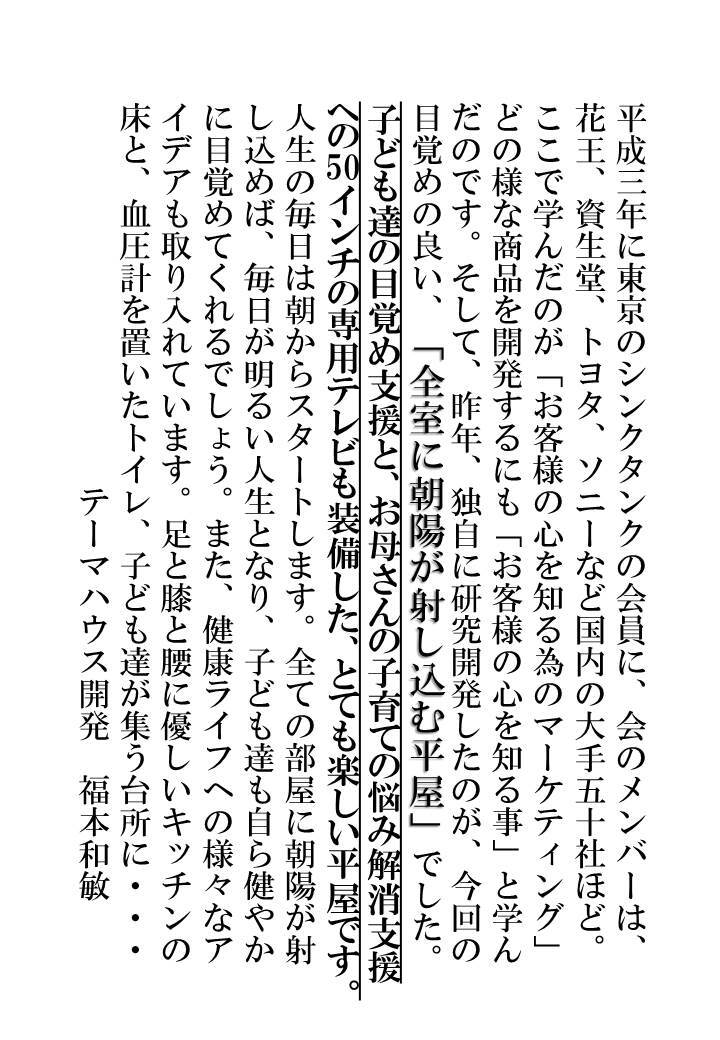 平成三年に東京のシンクタンクの会員に、会のメンバーは、
花王、資生堂、トヨタ、ソニーなど国内の大手五十社ほど。
ここで学んだのが「お客様の心を知る為のマーケティング」
どの様な商品を開発するにも「お客様の心を知る事」と学ん
だのです。そして、昨年、独自に研究開発したのが、今回の
目覚めの良い、「全室に朝陽が射し込む平屋」でした。
子ども達の目覚め支援と、お母さんの子育ての悩み解消支援
への50インチの専用テレビも装備した、とても楽しい平屋です。
人生の毎日は朝からスタートします。全ての部屋に朝陽が射
し込めば、毎日が明るい人生となり、子ども達も自ら健やか
に目覚めてくれるでしょう。また、健康ライフへの様々なア
イデアも取り入れています。足と膝と腰に優しいキッチンの
床と、血圧計を置いたトイレ、子ども達が集う台所に・・・
テーマハウス開発　福本和敏